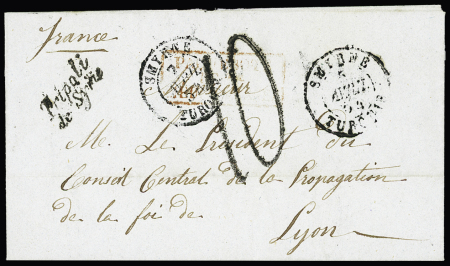 France
Tripoli
de Syrie
SMYRNE
TURQUIE
SMYRNE
TURQUIE
10
Monsieur
M. Le Président du
Conseil Central de la Propagation
de la foi de
Lyon